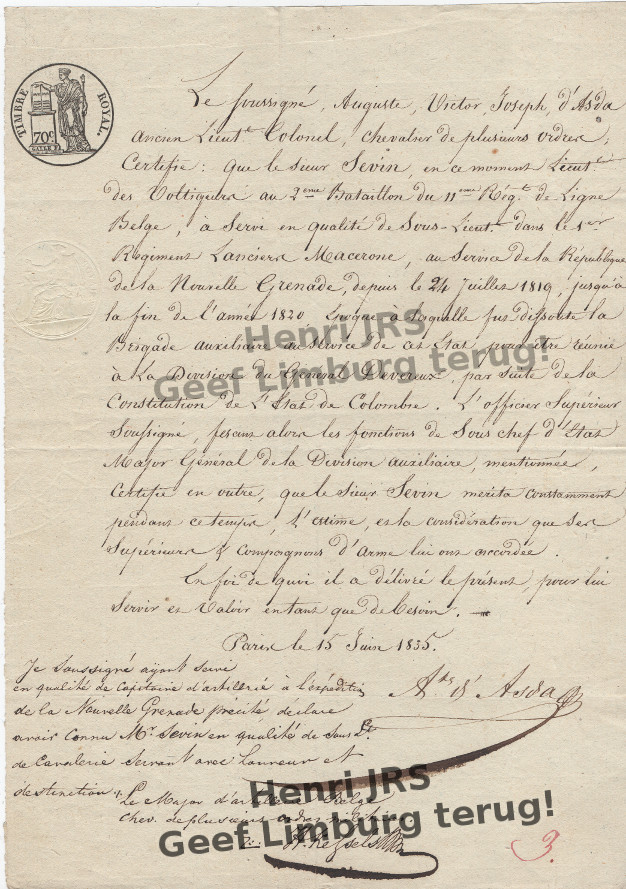 TIMBRE ROYAL.
70c
Le soussigné, Auguste, Victor, Joseph, d'Asda
ancien Lieut.t Colonel, chevalier de plusieurs ordres,
Certifie: que le sieur Sevin, en ce moment Lieut.
des Voltigeurs au 2eme Bataillon du 11eme Rég.t de Ligne
Belge, à Servi en qualité de Sous-Lieut. dans le 1er
Régiment Lanciers Macerone, au Service de la République
de la Nouvelle Grenade, depuis le 24 Juillet 1819, jusqu'à
la fin de l'année 1820 Epoque à laquelle fut dissoute la
Brigade auxiliaire au service de cet Etat, pour être réunie
à La Division du Général Devereux, par suite de la
Constitution de L'Etat de Colombie. L'officier Supérieur
Soussigné, fesant alors les fonctions de Sous chef d'Etat
Major Général de la Division auxiliaire, mentionnée,
Certifie en outre, que le sieur Sevin merita constamment
pendant ce temps, L'estime, et la considération que ses
Supérieurs & compagnons d'arme lui ont accordée.
En foi de quoi il a délivré le présent, pour lui
Servir et Valoir en tant que de besoin.
Paris le 15 Juin 1835.
A.te d'Asda
Je soussigné ayant servi
en qualité de Capitaine d'artillerie à l'éxpéditi
de la Nouvelle Grenade précité declare
avoir connu Mr Sevin en qualité de Sous Lt.
de Cavalerie Servant avec honneur et
destinction.
Le Major d'artillerie Belge
Chev. de plusieurs ordres
Kessels
3.
Henri JRS
Geef Limburg terug!
Henri JRS
Geef Limburg terug!